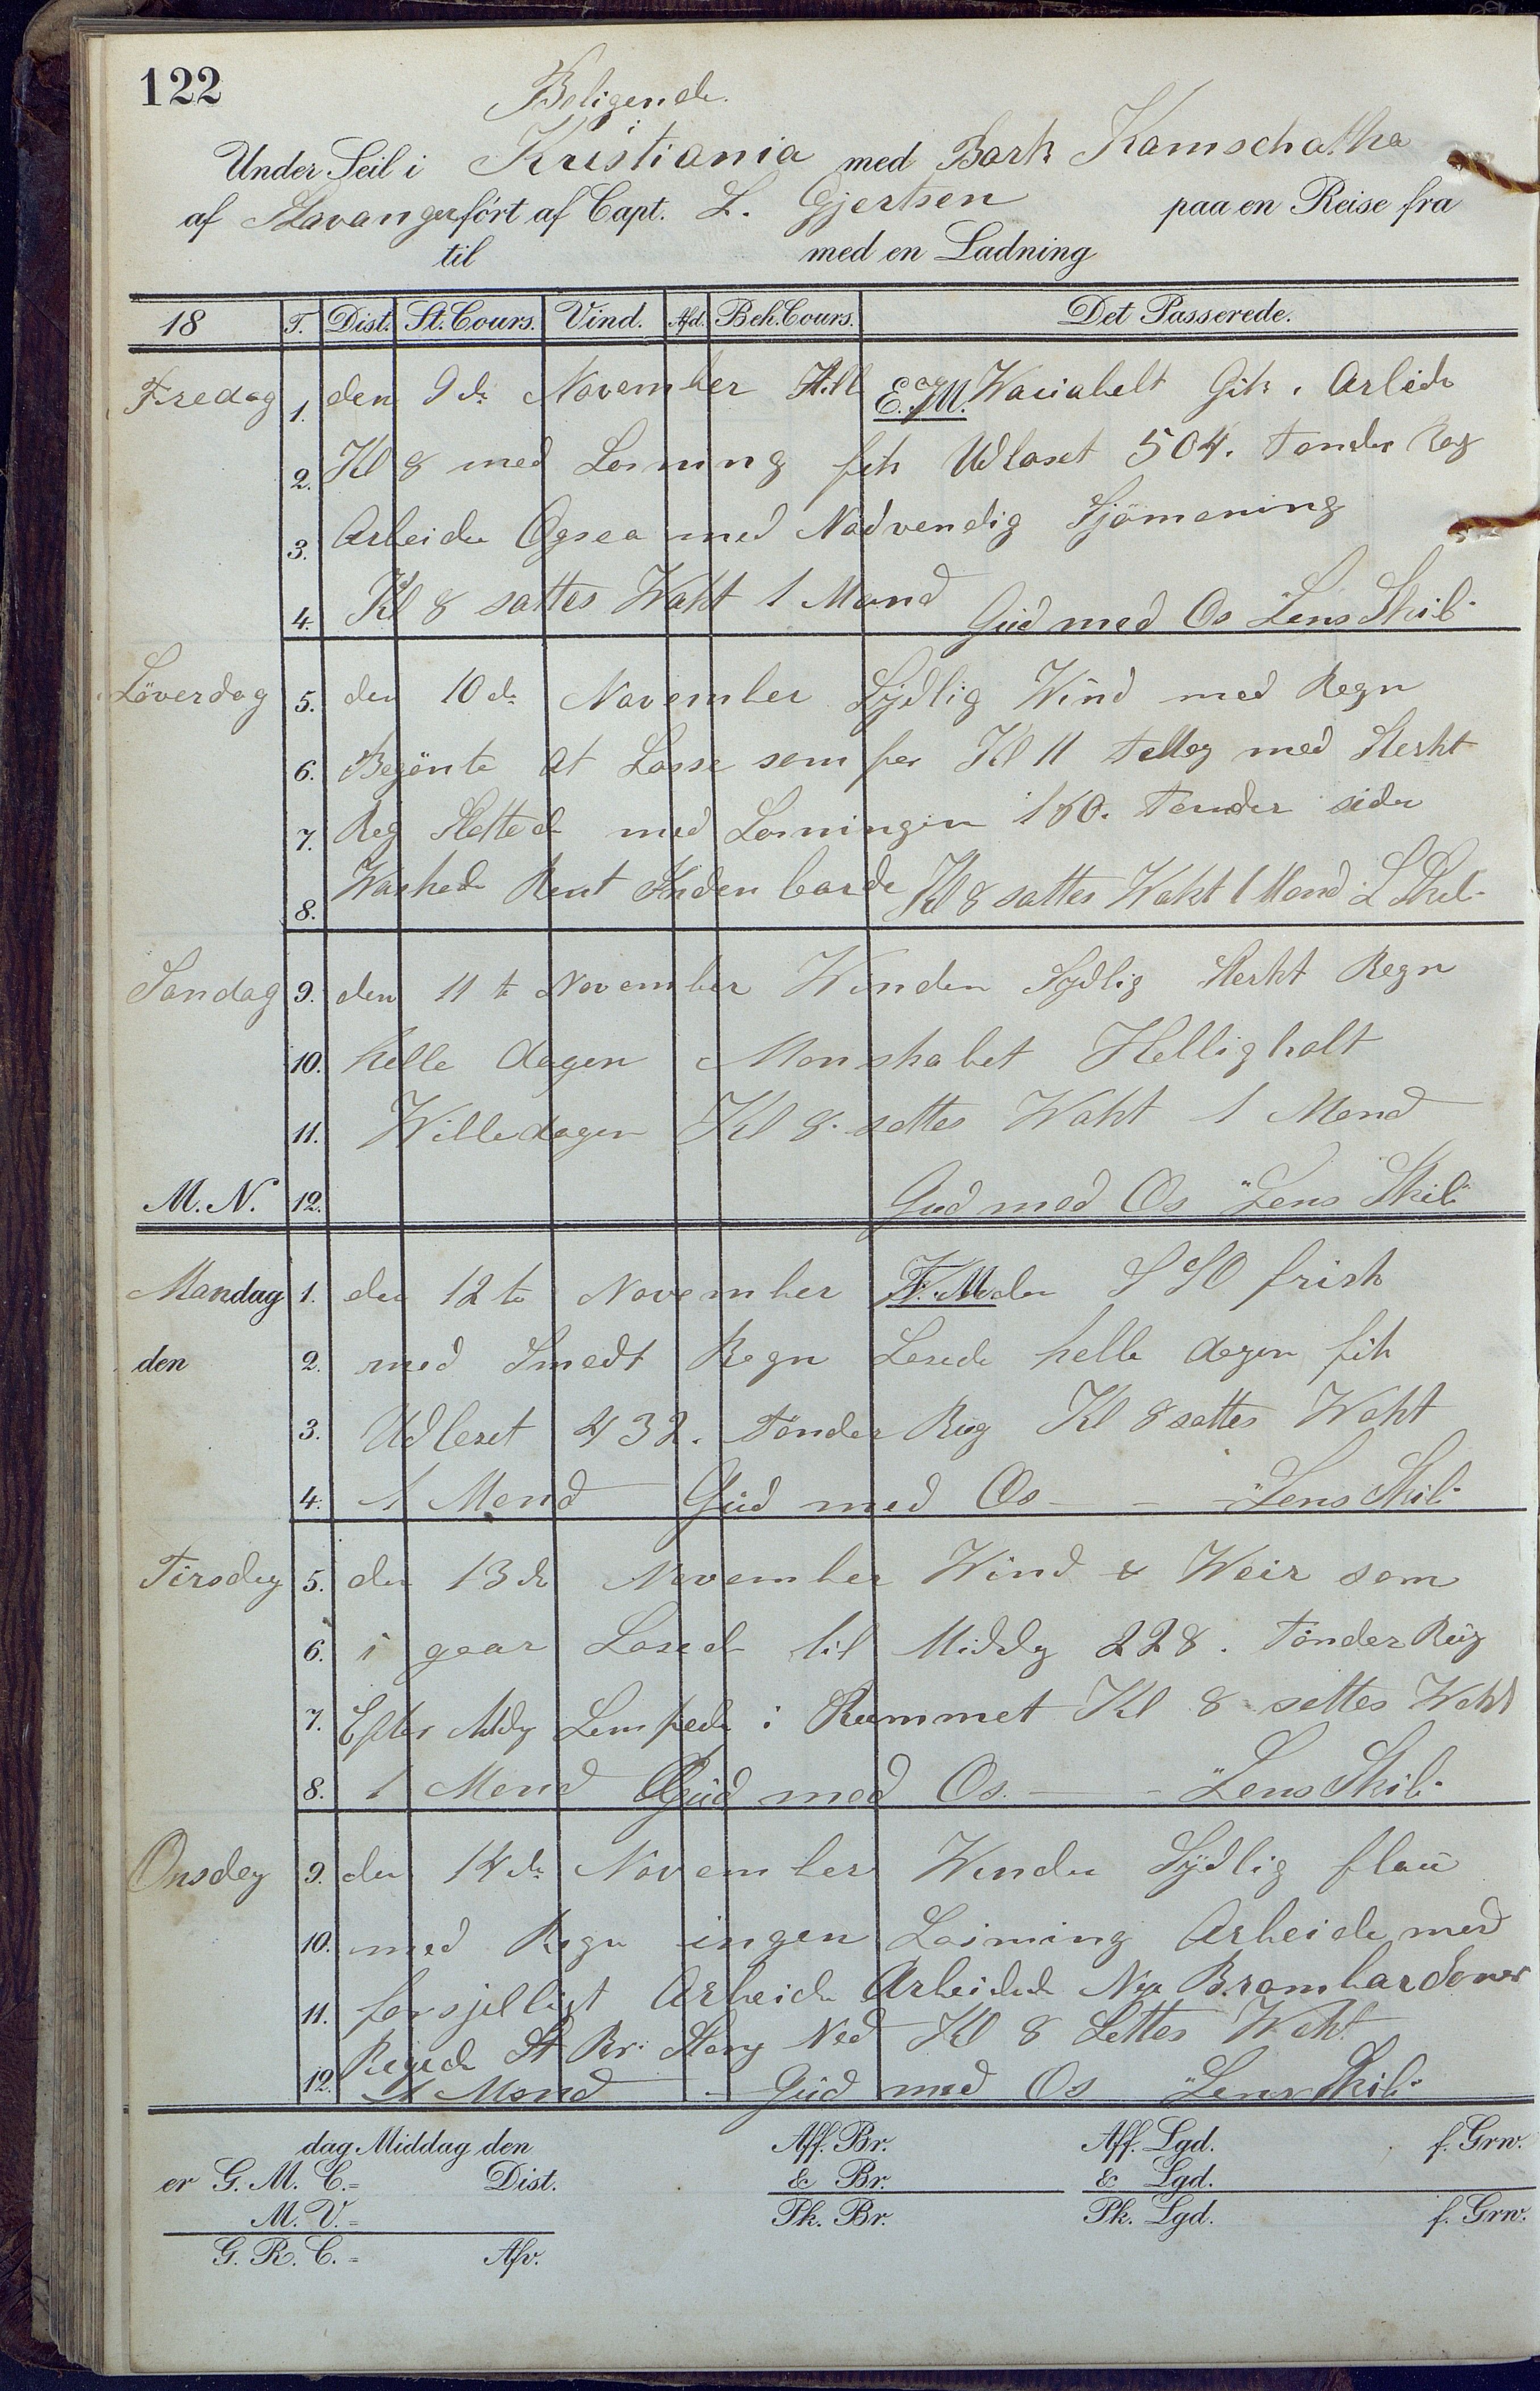 122
Beligende
Under Seil i Kristiania med Bark Kamschatka
af Stavanger ført af Capt. L. Gjertsen paa en Reise fra
til med en Ladning
18 T. Dist. St. Cours. Vind. Afd. Beh. Cours. Det Passerede.
Fredag 1. den 9de November E.M. Wariabelt Gik i Arbeide
2. Kl 8 med Losning fik Udlaset 504. Tønder Rog
3. Arbeide Ogsaa med Nødvendig Sjömening
4. Kl 8 sattes Wakt 1 Mand Gud med Os Lens Skib
Löverdag 5. den 10de November Sydlig Wind med Regn
6. Begönte at Losse som før Kl 11 med Sterkt
7. Reg Slutted med Losningen 160. Tønder siden
8. Waskede Rent Kl 8 sattes Wakt 1 Mand L Skib
Søndag 9. den 11te November Winden Sydlig Sterkt Regn
10. helle dagen Manskabet Hellig halt
11. Willedagen Kl 8. sattes Wakt 1 Mand
M. N. 12. Gud med Os Lens Skib
Mandag 1. den 12te November F. M. S SO frisk
den 2. med Smaat Regn Losede helle dagen fik
3. Udloset 432. Tønder Rug Kl 8 sattes Wakt
4. 1 Mand Gud med Os - - Lens Skib
Tirsdag 5. den 13de November Wind & Weir som
6. i gaar Losede til Middg 228. Tönder Rug
7. Efter Middg Lempede i Rummet Kl 8 sattes Wakt
8. 1 Mand Gud med Os. - - Lens Skib
Onsdag 9. den 14de November Winden Sydlig flau
10. med Regn ingen Losning Arbeide med
11. forsjelligt Arbeide Arbeided Nye Brambardoner
Regede St Br: Stang Ned Kl 8 Settes Wakt
12. 1 Mand - Gud med Os Lens Skib
dag Middag den Aff. Br. Aff. Lgd. f. Grw.
er G. M. C.= Dist. & Br. & Lgd.
M. V.= Pk. Br. Pk. Lgd. f. Grw.
G. R. C.= Afv.